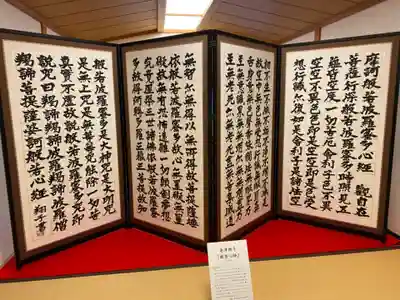 摩訶般若波羅蜜多心経 觀自在
菩薩行深般若波羅蜜多時照見五
蘊皆空度一切苦厄舎利子色不異
空空不異色色即是空空即是色受
想行識亦復如是舎利子是諸法空
相不生不滅不垢不浄不増不減是
故空中無色無受想行識無眼耳鼻
舌身意無色聲香味觸法無眼界乃
至無意識界無無明亦無無明盡乃
至無老死亦無老死盡無苦集滅道
無智亦無得以無所得故菩提薩埵
依般若波羅蜜多故心無罣礙無罣
礙故無有恐怖遠離一切顛倒夢想
究竟涅槃三世諸佛依般若波羅蜜
多故得阿耨多羅三藐三菩提故知
般若波羅蜜多是大神呪是大明呪
是無上呪是無等等呪能除一切苦
真實不虚故説般若波羅蜜多呪即
説呪曰羯諦羯諦波羅羯諦波羅僧
羯諦菩提薩婆訶般若心経 翔子書
金澤翔子
「般若心経」